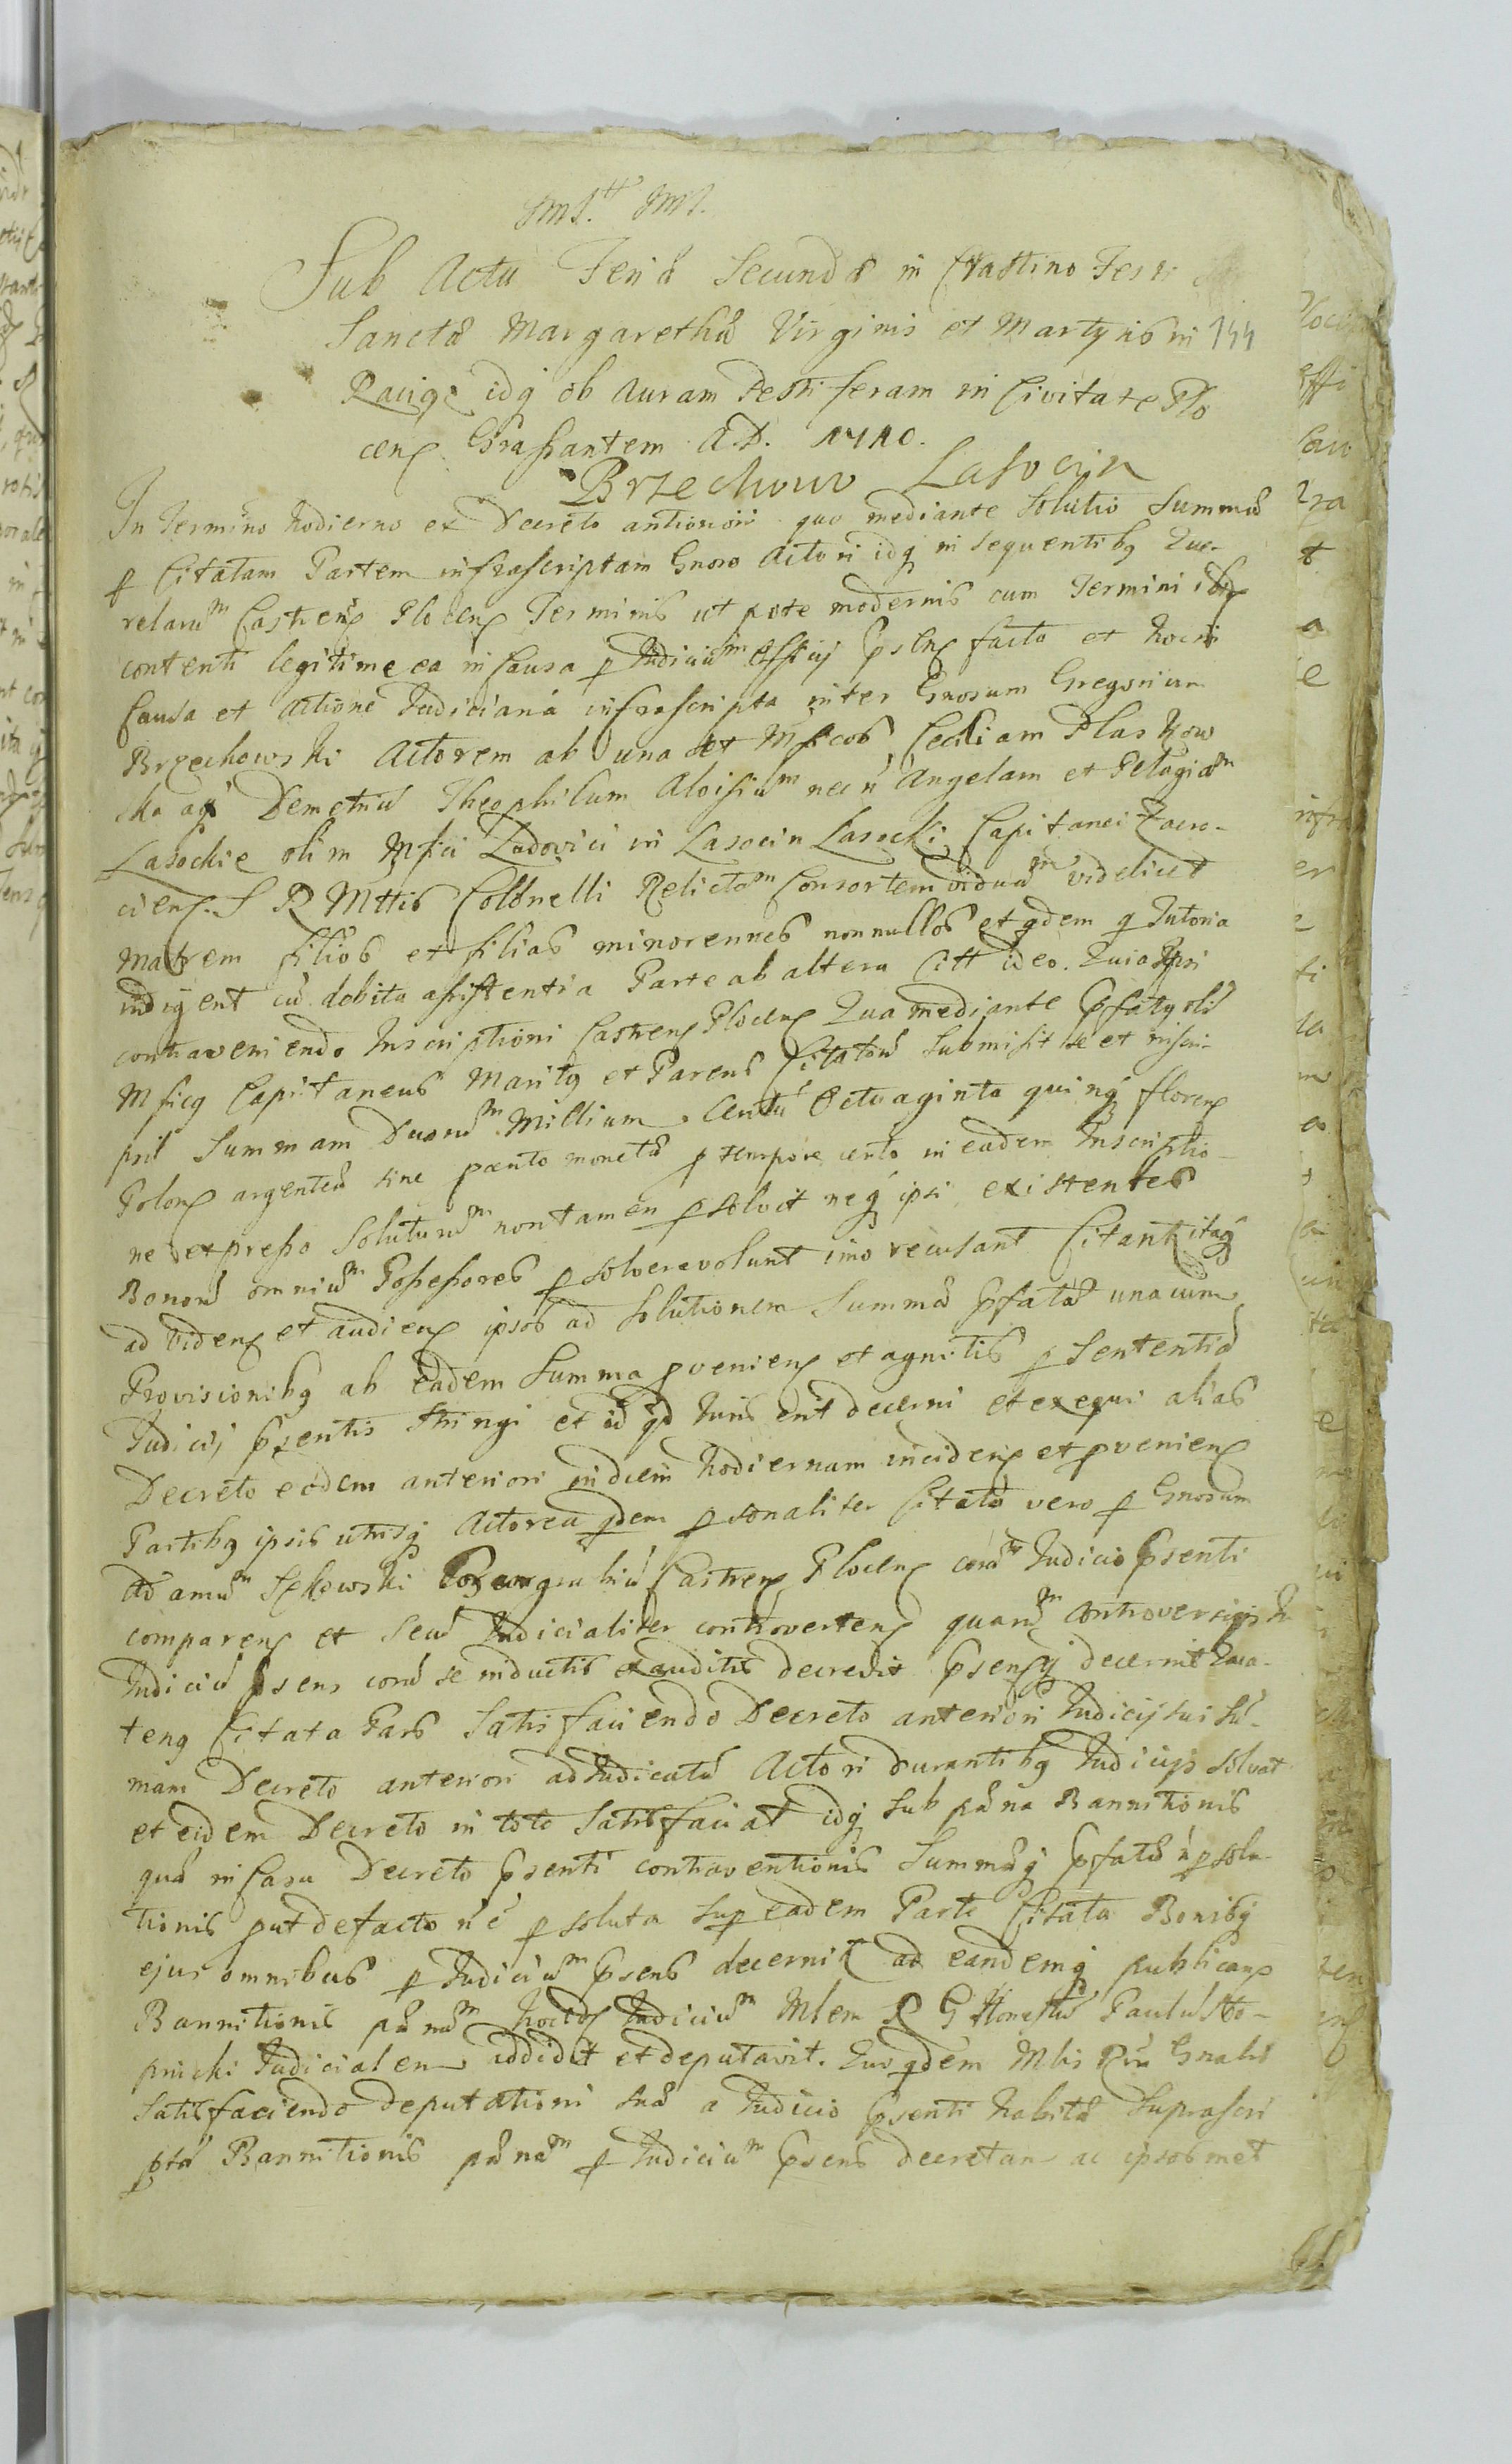 Sub Actu Feria Secunda in Crastino Festi
Sancta Margaretha Virginis et Martyris in 144
Raciąż idq ob Auram Pestiferam in Civitate Plo
cenς Graſsantem A.D. 1710.
Brzechowo Lasocin
In Termino hodierno ex Decreto anteriori quo mediante Solutio Summa
p Citatam Partem infrascriptam Gnoso Actori idq in sequentibg Que-
relarum Castrenς Plocenς Terminis ut pote modernis cum Termini
contenti legitime ea in Causa p Judicium Officij psens facta et
Causa et Actione Judiciaria infrascripta inter Gnosum Gregorium
Brzechowski Actorem ab una et Mficos Ceciliam Plaskow
ska aς Demetriu Theophilum Aloisium nec n Angelam et Pelagiam
Lasockie olim Mfici Ludovici in Lasocin Lasocki Capitanei Zacro-
cienς. S R Mttis Collonelli Relictam Consortem viduam videlicet
matrem filios et filias minorennes nonnullos et qdem q Tutoria
indigent cu debita aſsistentia Parte ab altera Citt ideo. Quia Ipsi
contraveniendo Inscriptioni Castrenς Plocenς Qua mediante pfatg oli
Mficg Capitaneus Maritg et Parens Citatoru Submisit se et inscri-
psit Summam Duorum Millium Centu Octuaginta quinq florenς
Polonς argentea sine parvto moneta p tempore certo in eadem Inscriptio-
ne expreſso Soluturum non tamen psolvit neq ipsi existentes
Bonoru omnium Poſseſsores psolvere volunt imo recusant Citant itaq
ad videnς et audienς ipsos ad Solutionem Summa pfata una cum
Provisionibg ab eadem Summa pvenienς et agnitis p Sententia
Judicij psentis Stringi et id qd Juris erit decerni et exequi alias
Decreto eodem anteriori in diem hodiernam incidenς et pvenienς
Partibg ipsis utrisq Actorea qdem psonaliter Citata vero p Gnosum
Adamum Sękowski Castrenς Plocenς coram Judicio psenti
comparenς et Seu Judicialiter controvertenς quarum Controversijs
Judiciu psens cora se inductis exauditis decrevit psensq decernit Qua-
teng Citata Pars Satisfaciendo Decreto anteriori Judicij sui Su-
mam Decreto anteriori adjudicata Actori durantibg Judicijs solvat
et eidem Decreto in toto Satisfaciat idq Sub pana Bannitionis
qua in Casu Decreto psenti contraventionis Summaq pfata n psolu-
tionis put de facto n e psoluta Sup eadem Parte Citata Bonisq
ejus omnibus p Judicium psens decernit ad eandemq publicanς
Bannitionis panam Judicium Mlem R G Honestu Paulu Sto-
pnicki Judicialem addidit et deputavit. Qui qdem Mlis Gnalis
Satisfaciendo deputationi sua a Judicio psenti habita Suprascri
pta Bannitionis panam p Judicium psens decretam ac ipsosmet